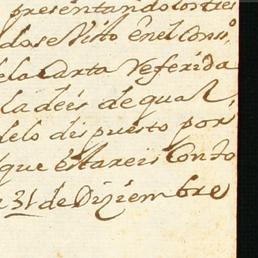 presentandolostres
dose Visto ênel Cons,º
dela Carta Referida
la deês de gual,
delo dispuesto por
que êstareis Conto
31 de Diziembre